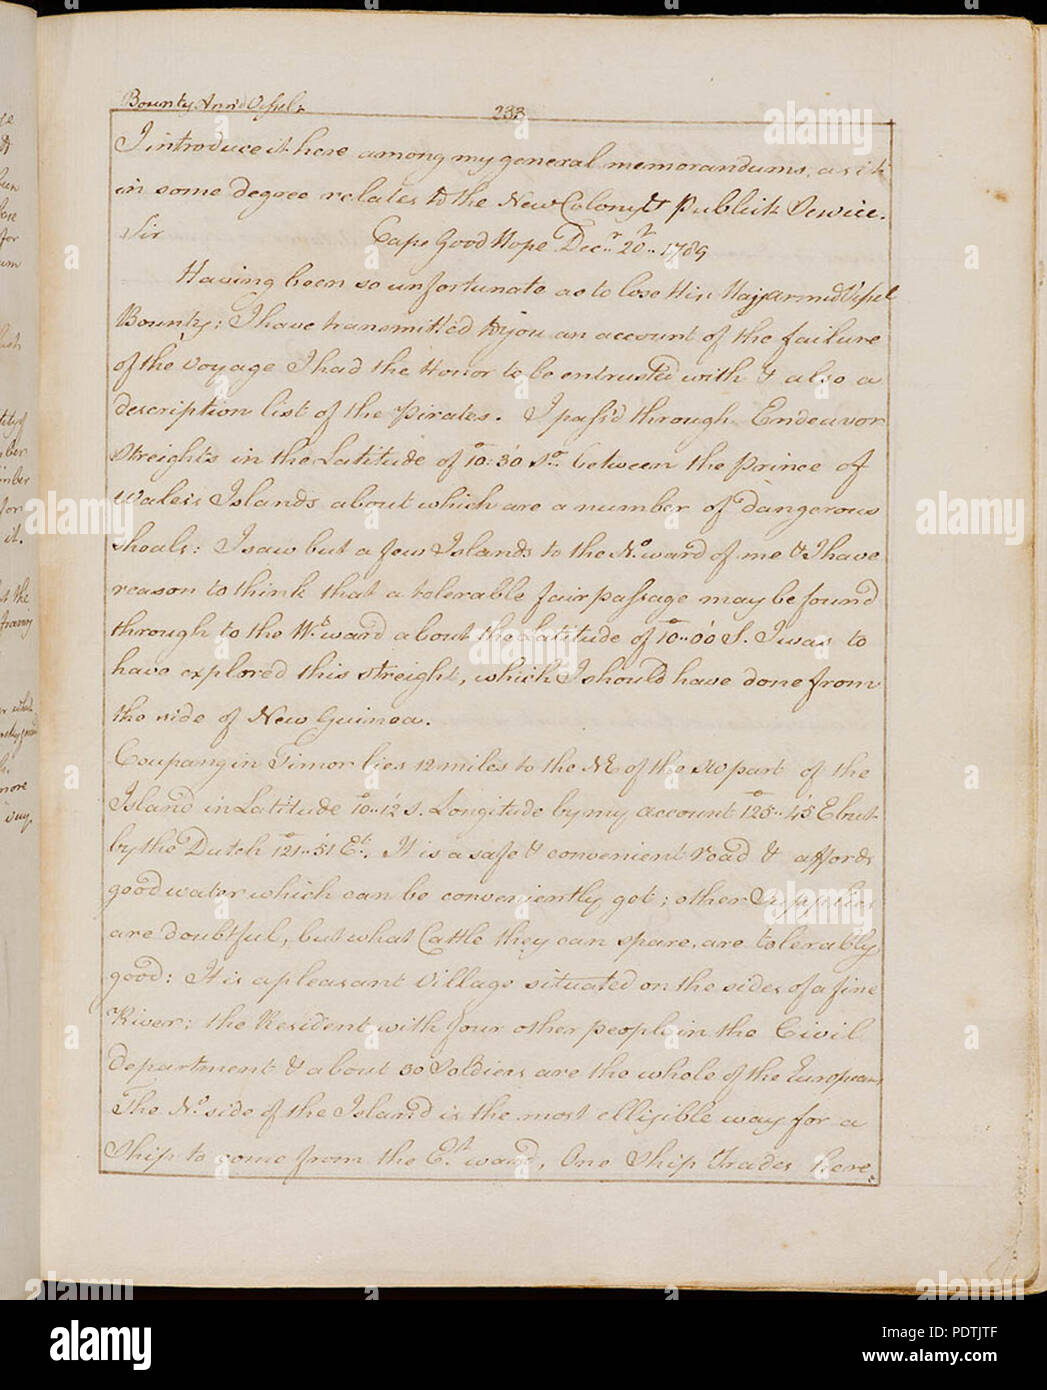 Bounty Arm'd Vessel. 233
I introduce it here among my general memorandums, as it
in some degree relates to the New Colony & Publick Service.
Sir Cape Good Hope Decr. 20.. 1789
Having been so unfortunate as to lose His Majys armed Vessel
Bounty; I have transmitted to you an account of the failure
of the voyage I had the Honor to be entrusted with & also a
description list of the Pirates. I pass'd through Endeavor
Streights in the Latitude of 10:30 So. between the Prince of
Wales's Islands about which are a number of dangerous
Shoals: I saw but a few Islands to the No.ward of me & I have
reason to think that a tolerable fair passage may be found
through to the Wt.ward about the Latitude of 10..00 S. I was to
have explored this streight, which I should have done from
the side of New Guinea.
Coupang in Timor lies 12 miles to the NE of the SW part of the
Island in Latitude 10..12 S. Longitude by my account 125..45 E but
by the Dutch 121..51 Et. It is a safe & convenient road & affords
good water which can be conveniently got; other Supplies
are doubtful, but what Cattle they can spare, are tolerably
good: It is a pleasant Village situated on the sides of a fine
River; the Resident with four other people in the Civil
department & about 30 Soldiers are the whole of the Europeans
The No. side of the Island is the most elligible way for a
Ship to come from the Et.ward, One Ship Trades here.
it.
alamy
a
alamy
PDTJTF
www.alamy.com